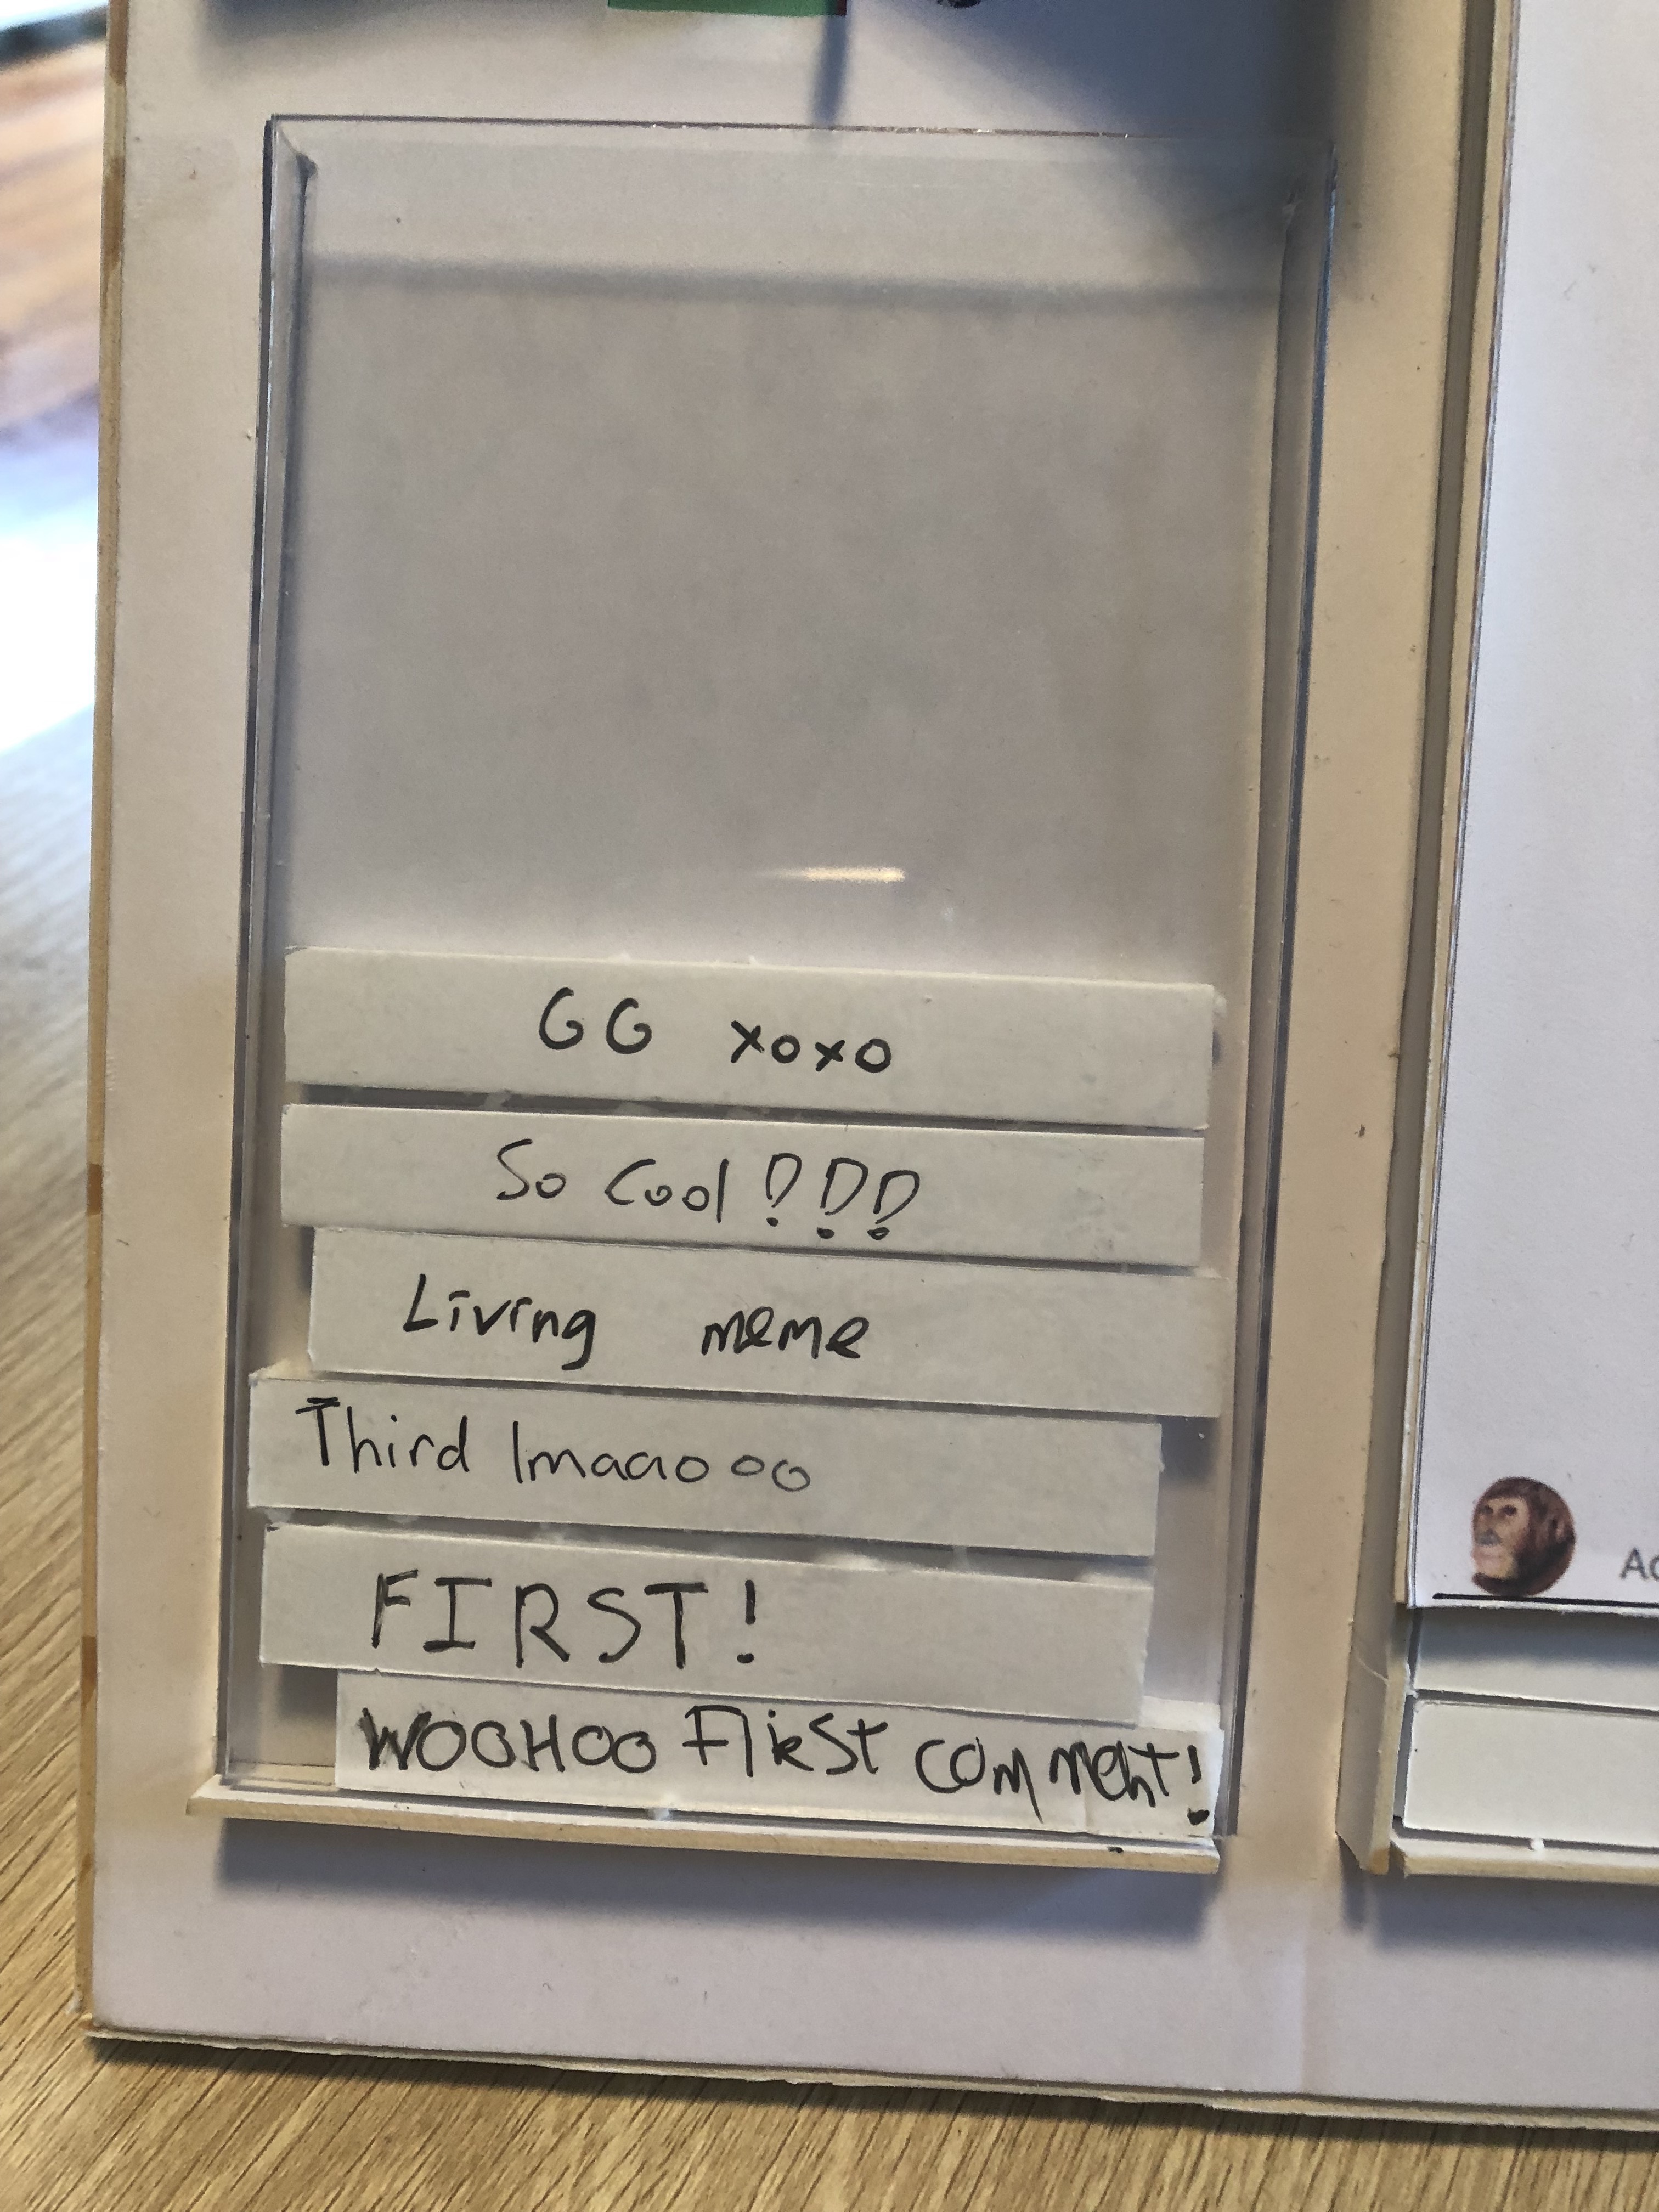 GG xoxo
So Cool!!!
Living meme
Third lmaaooo
FIRST!
WOOHOO FIRST comment!